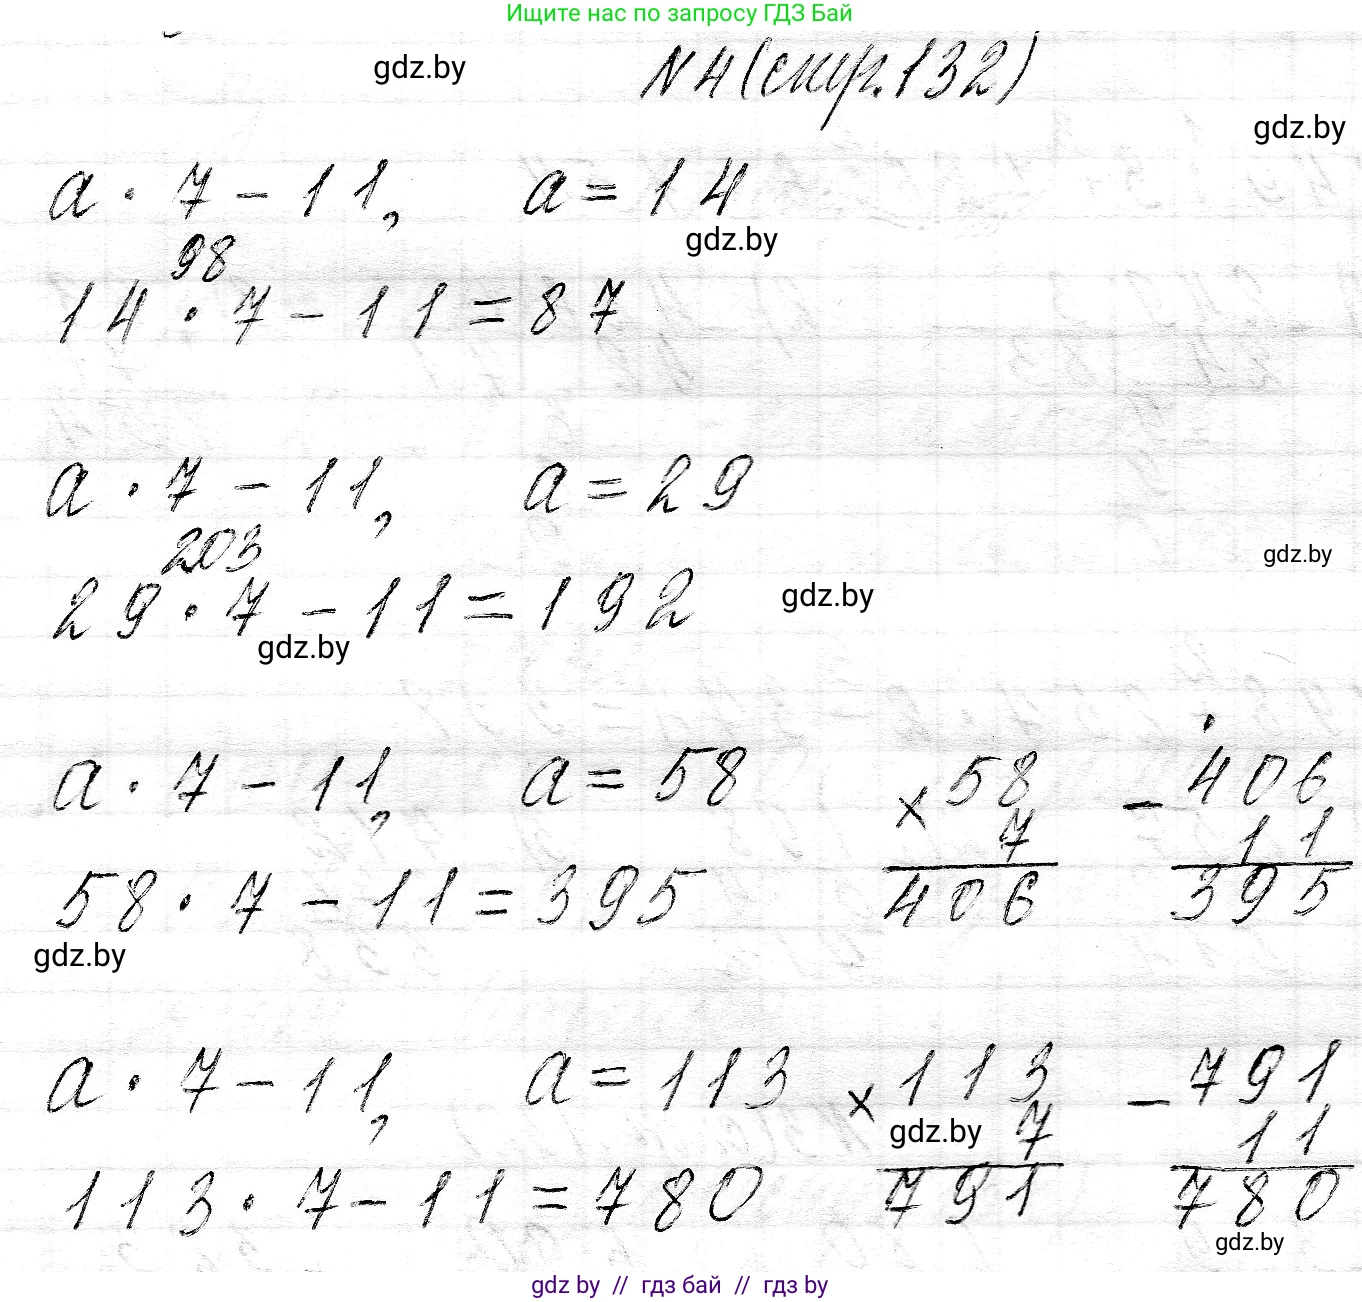 Ищите нас по запросу ГДЗ Бай
gdz.by
N 4 (стр. 132)
gdz.by
a · 7 - 11, a = 14
gdz.by
98
14 · 7 - 11 = 87
a · 7 - 11, a = 29
203
gdz.by
29 · 7 - 11 = 192
gdz.by
gdz.by
a · 7 - 11, a = 58 × 58 - 406
7 11
58 · 7 - 11 = 395 406 395
gdz.by
a · 7 - 11, a = 113 × 113 - 791
gdz.by 7 11
113 · 7 - 11 = 780 791 780
gdz.by
gdz by // гдз бай // гдз by